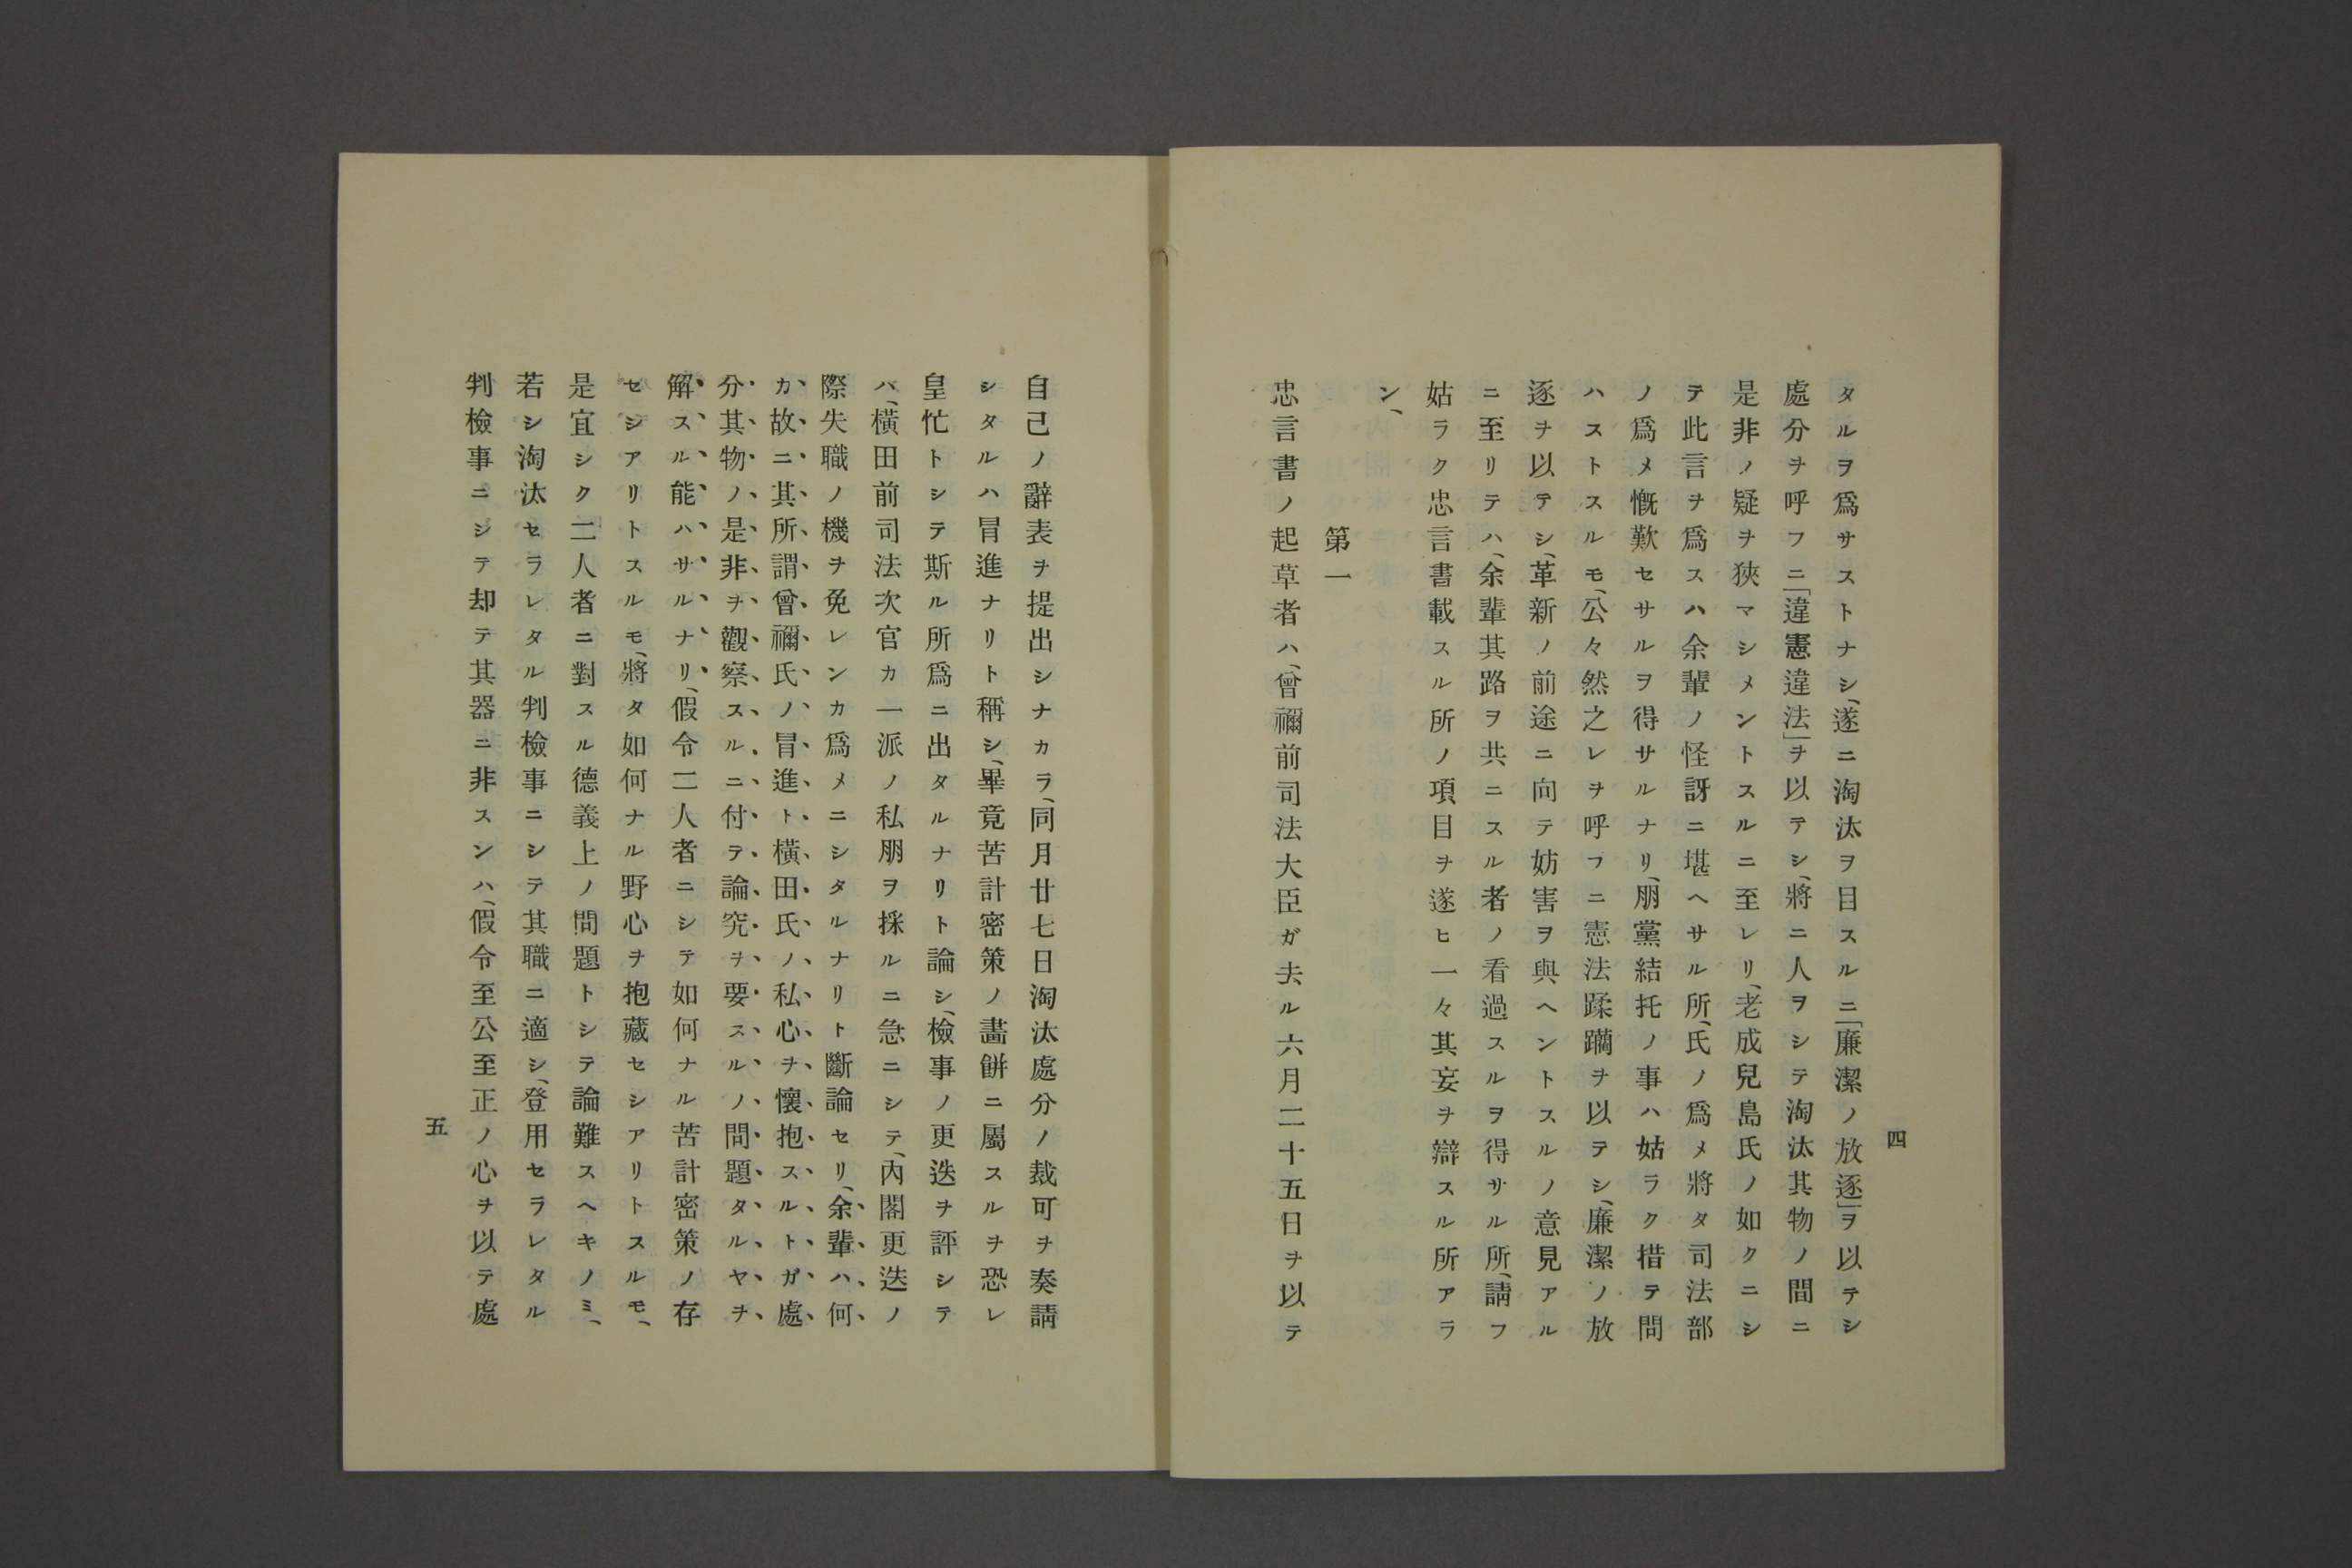 四
タルヲ爲サストナシ、遂ニ淘汰ヲ目スルニ「廉潔ノ放逐」ヲ以テシ
處分ヲ呼フニ「違憲違法」ヲ以テシ、將ニ人ヲシテ淘汰其物ノ間ニ
是非ノ疑ヲ狹マシメントスルニ至レリ、老成兒島氏ノ如クニシ
テ此言ヲ爲スハ余輩ノ怪訝ニ堪ヘサル所、氏ノ爲メ將タ司法部
ノ爲メ慨歎セサルヲ得サルナリ、朋黨結托ノ事ハ姑ラク措テ問
ハストスルモ、公々然之レヲ呼フニ憲法蹂躪ヲ以テシ、廉潔ノ放
逐ヲ以テシ、革新ノ前途ニ向テ妨害ヲ與ヘントスルノ意見アル
ニ至リテハ、余輩其路ヲ共ニスル者ノ看過スルヲ得サル所、請フ
姑ラク忠言書載スル所ノ項目ヲ遂ヒ一々其妄ヲ辯スル所アラ
ン、
第一
忠言書ノ起草者ハ、曾禰前司法大臣ガ去ル六月二十五日ヲ以テ
自己ノ辭表ヲ提出シナカラ、同月廿七日淘汰處分ノ裁可ヲ奏請
シタルハ冒進ナリト稱シ、畢竟苦計密策ノ畵餅ニ屬スルヲ恐レ
皇忙トシテ斯ル所爲ニ出タルナリト論シ、檢事ノ更迭ヲ評シテ
バ、橫田前司法次官カ一派ノ私朋ヲ採ルニ急ニシテ、內閣更迭ノ
際失職ノ機ヲ免レンカ爲メニシタルナリト斷論セリ、余輩ハ何
カ故ニ其所謂曾禰氏ノ冒進ト橫田氏ノ私心ヲ懷抱スルトガ處
分其物ノ是非ヲ觀察スルニ付テ論究ヲ要スルノ問題タルヤヲ
解スル能ハサルナリ、假令二人者ニシテ如何ナル苦計密策ノ存
セシアリトスルモ、將タ如何ナル野心ヲ抱藏セシアリトスルモ、
是宜シク二人者ニ對スル德義上ノ問題トシテ論難スヘキノミ、
若シ淘汰セラレタル判檢事ニシテ其職ニ適シ、登用セラレタル
判檢事ニシテ却テ其器ニ非スンハ、假令至公至正ノ心ヲ以テ處
五